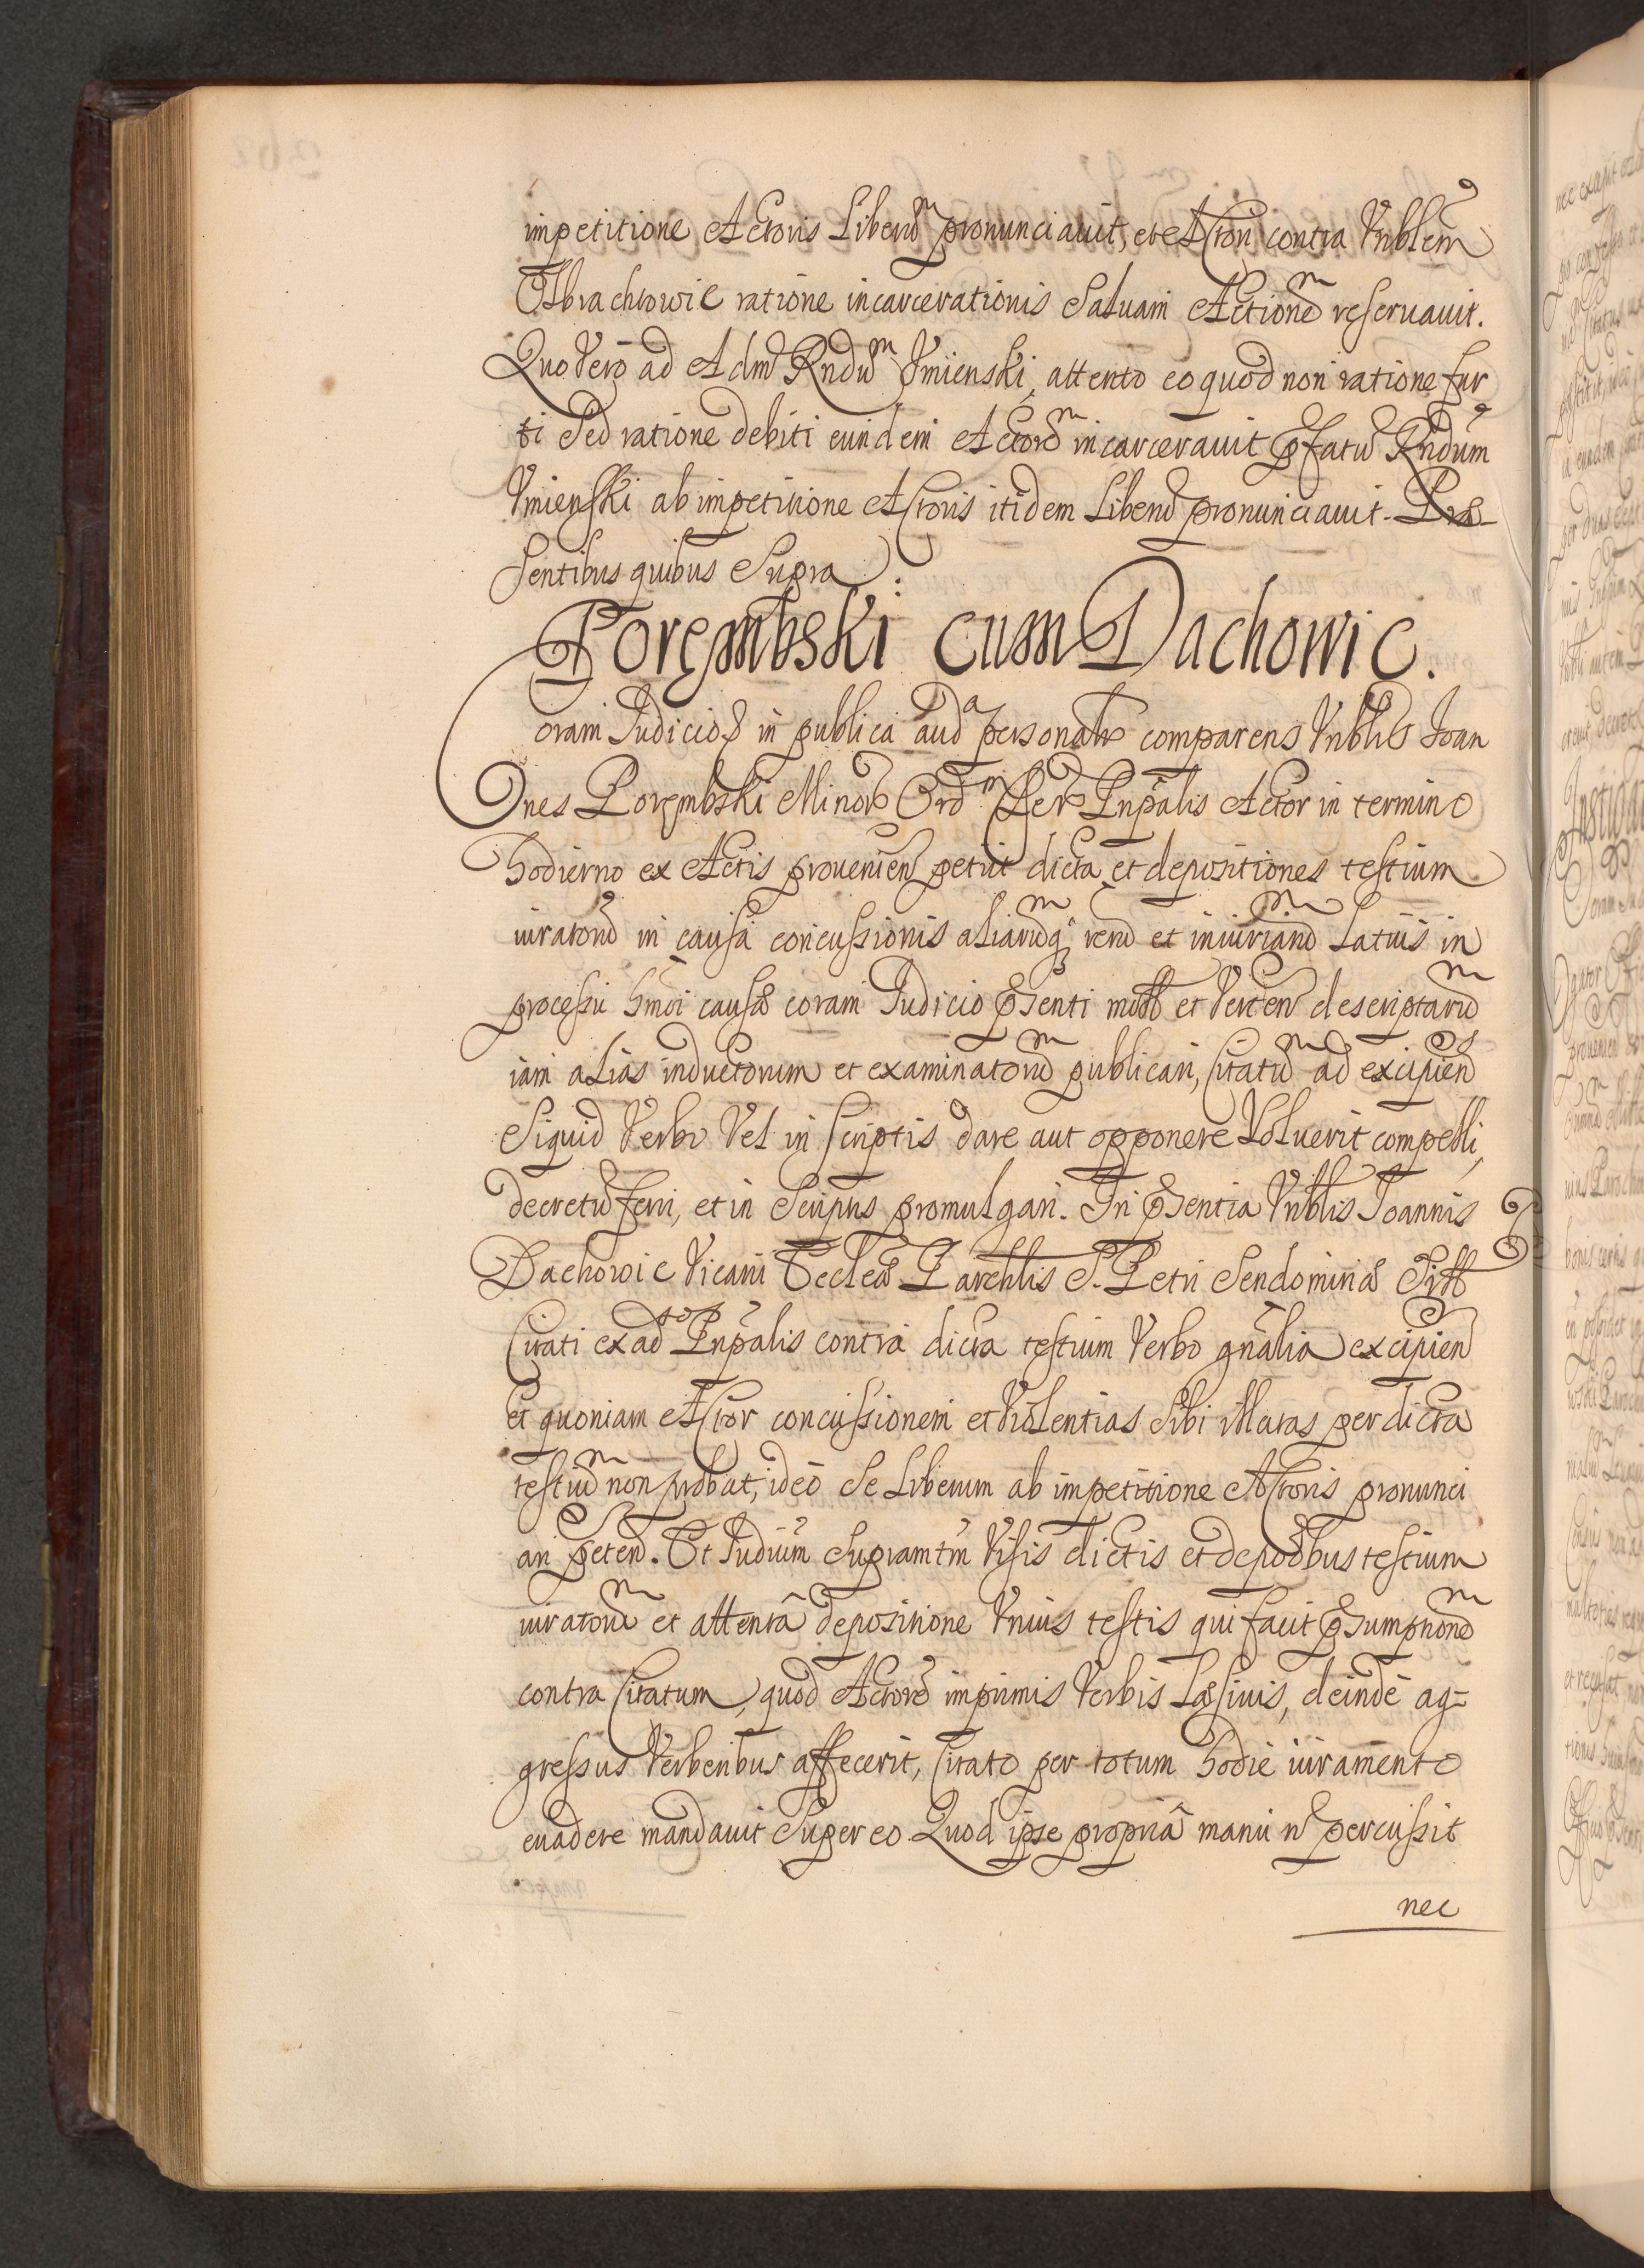 impetitione Actoris Liberũ pronunciauit, et Actori contra Vnblem
Olbrachtowic ratione incarcerationis Saluam Actionẽ reseruauit.
Quo Vero ad Admd Rndũm Vmienski, attento eo quod non ratione fur
ti Sed ratione debiti eundem Actorem incarcerauit pfatũ Rndum
Vmienski ab impetitione Actoris itidem Liberũ pronunciauit. Præ-
sentibus quibus Supra.
Porembski cum Dachowic.
Coram Iudicio in publica audа personalr comparens Vnblis Ioan
nes Porembski Minorũ Ordm Cler Prinpalis Actor in termino
hodierno ex Actis prouenien petiit dicta et depositiones testium
iuratorũ in causa concussionis aliarũq rerũ et iniuriarũ Latius in
processu hmoi causæ coram Iudicio psenti mott et Verten descriptarũ
iam alias inductorum et examinatorũ publicari, Citatũ ad excipien
Siquid Verbo Vel in Scriptis dare aut opponere Voluerit compelli,
decretũ ferri, et in Scriptis promulgari. In psentia Vnblis Ioannis
Dachowic Vicarii Eccleæ Parchlis S. Petri Sendomiriæ
Citati ex adso Prinpalis contra dicta testium Verbo gnalia excipien
et quoniam Actor concussionem et Violentias Sibi illatas per dicta
testiũ non probat, ideo Se Liberum ab impetitione Actoris pronunci
ari peten. Et Iudium Supramtm Visis dictis et deponbus testium
iuratorũ et attentâ depositione Vnius testis qui facit psumptionẽ
contra Citatum, quod Actorẽ imprimis Verbis Læsiuis, deinde ag=
gressus Verberibus affecerit, Citato per totum hodie iuramento
euadere mandauit Super eo Quod ipse propriâ manu ñ percussit
nec